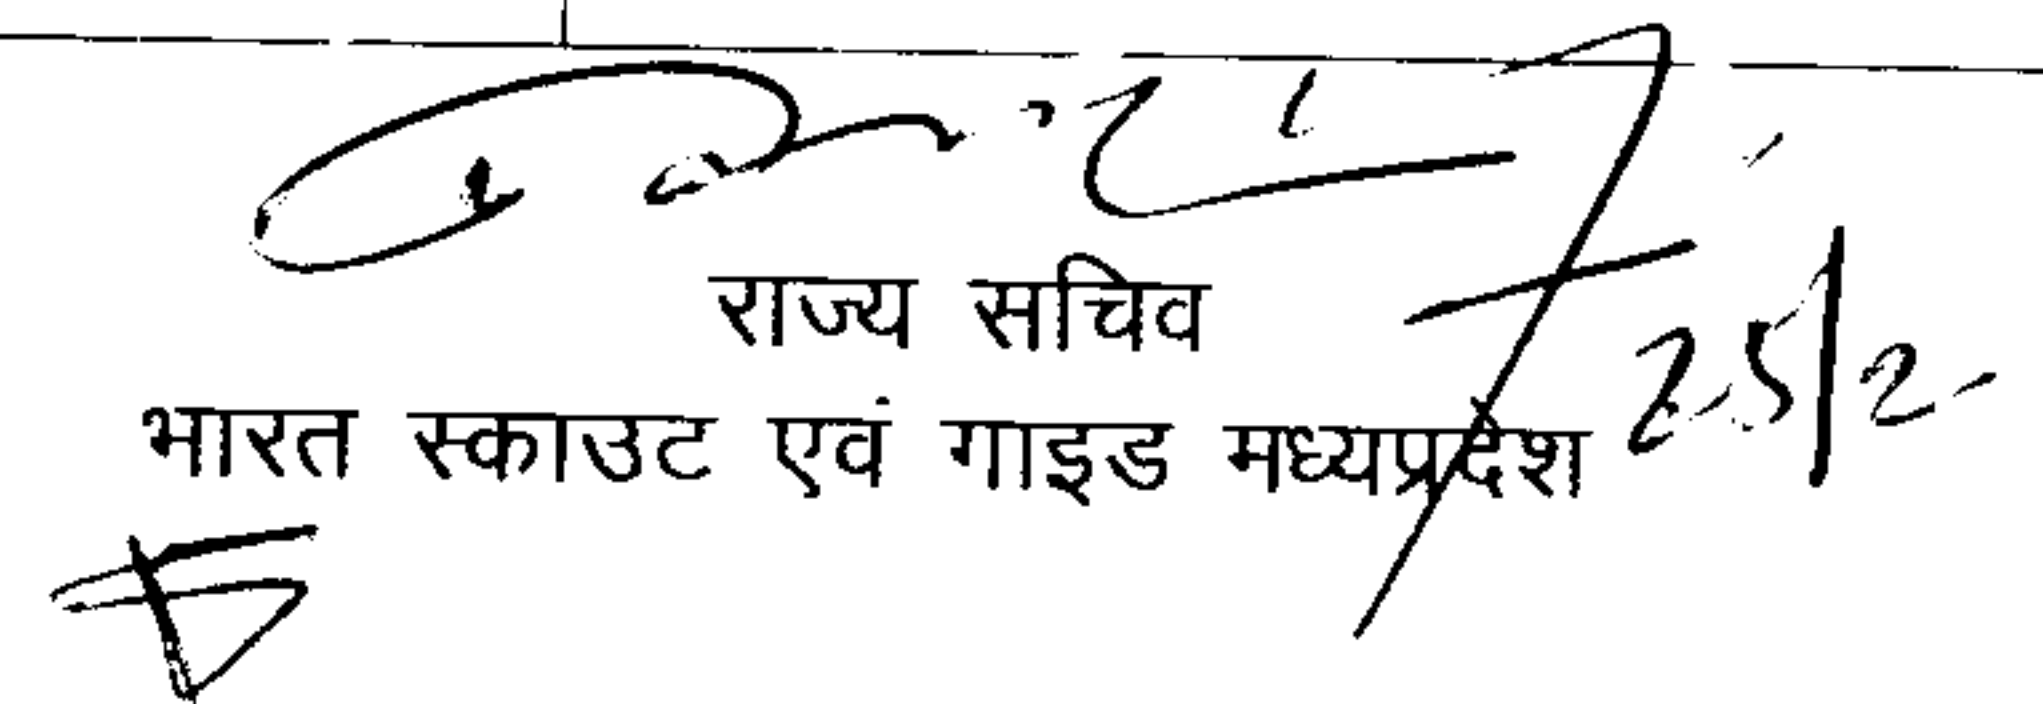 राज्य सचिव
भारत स्काउट एवं गाइड मध्यप्रदेश
25/2